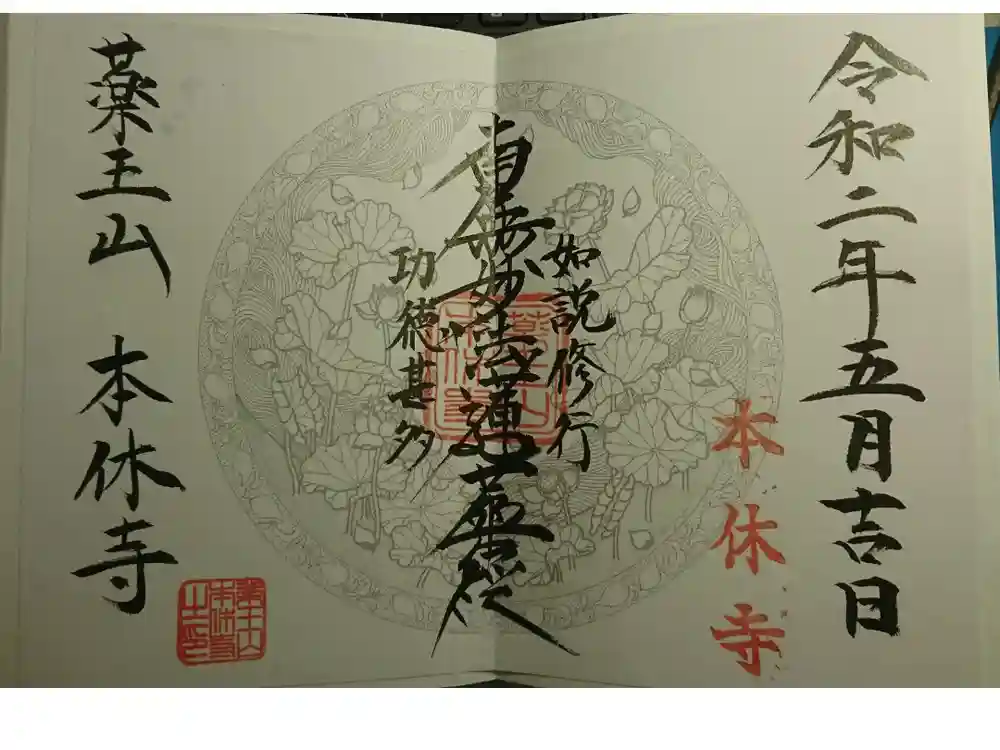 令和二年五月吉日
本休寺
如説修行
南無妙法蓮華経
功徳甚多
薬王山 本休寺
薬王山
本休寺
之印